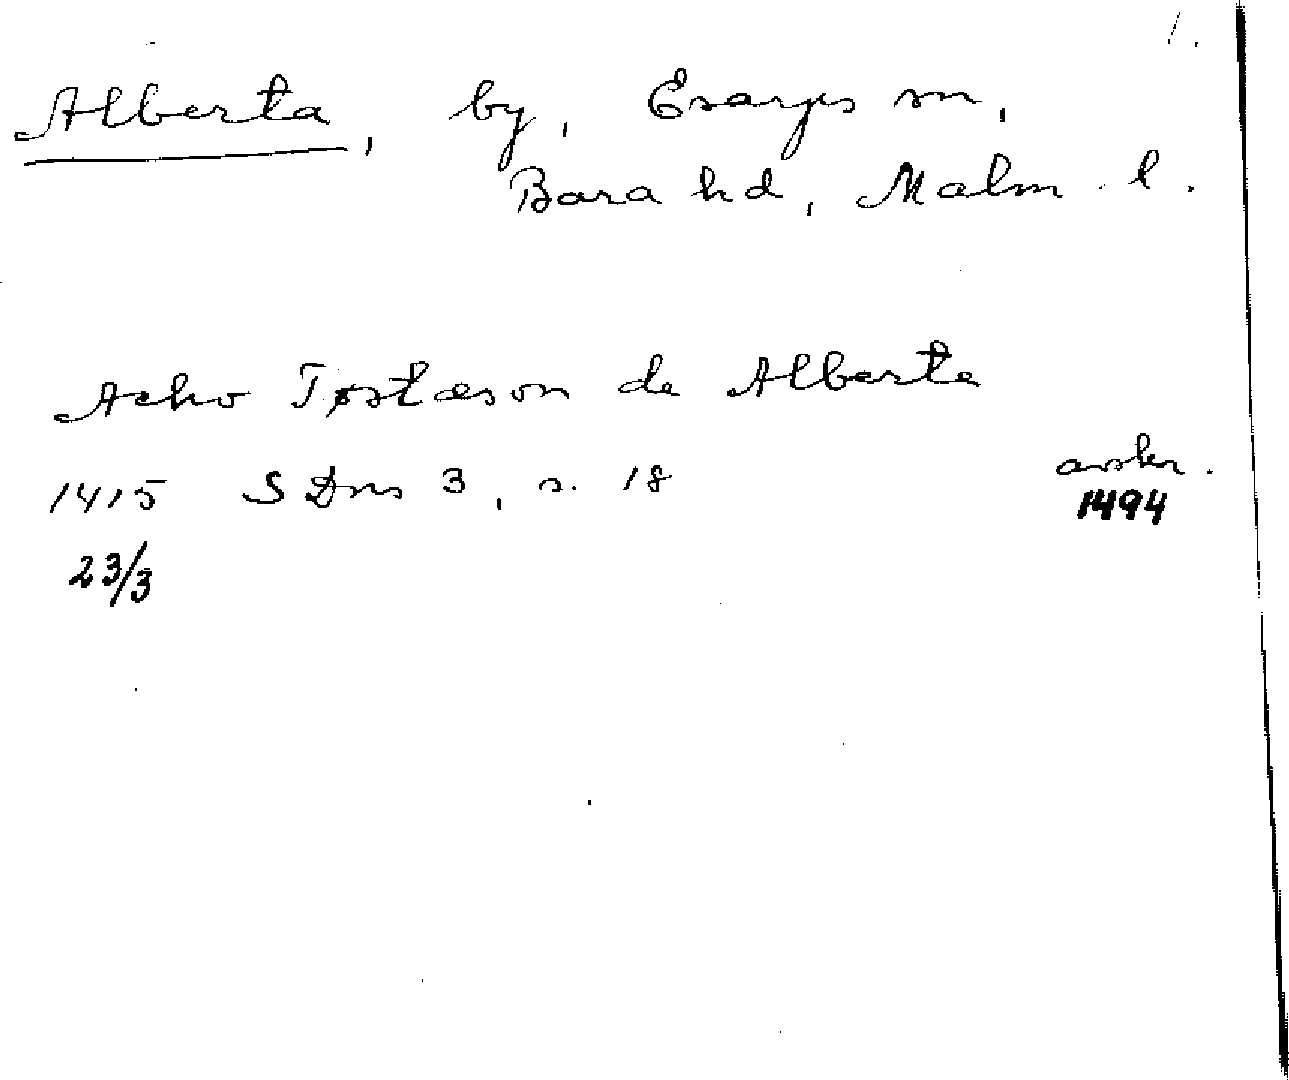 1.
Alberta, by, Esarps sn,
Bara hd, Malm. l.
Acho Tøstæson de Alberta
1415 SDns 3, s. 18 avskr.
1494
23/3